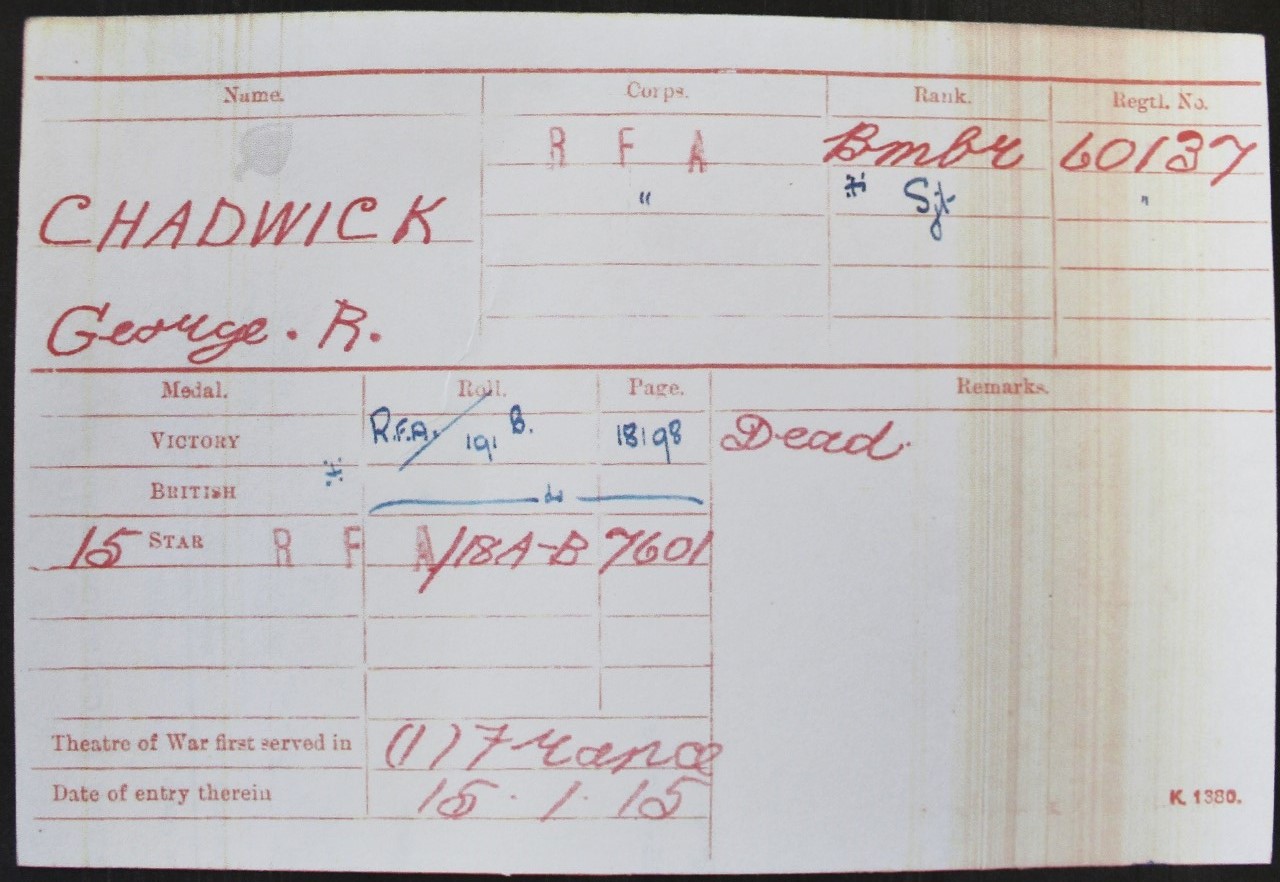 Name. Corps. Rank. Regtl. No.
R F A Bmbr 60137
CHADWICK " Sjt "
George. R.
Medal. Roll. Page. Remarks.
VICTORY R.F.A./191 B. 18198 Dead.
BRITISH do
15 STAR R F A/18A-B 7601
Theatre of War first served in (1) France
Date of entry therein 15.1.15
K. 1380.